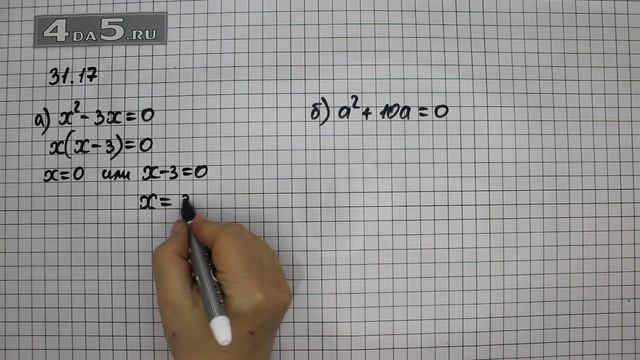 4DA5.RU
31.17
а) x² - 3x = 0
x(x - 3) = 0
x = 0 или x - 3 = 0
x =
б) a² + 10a = 0